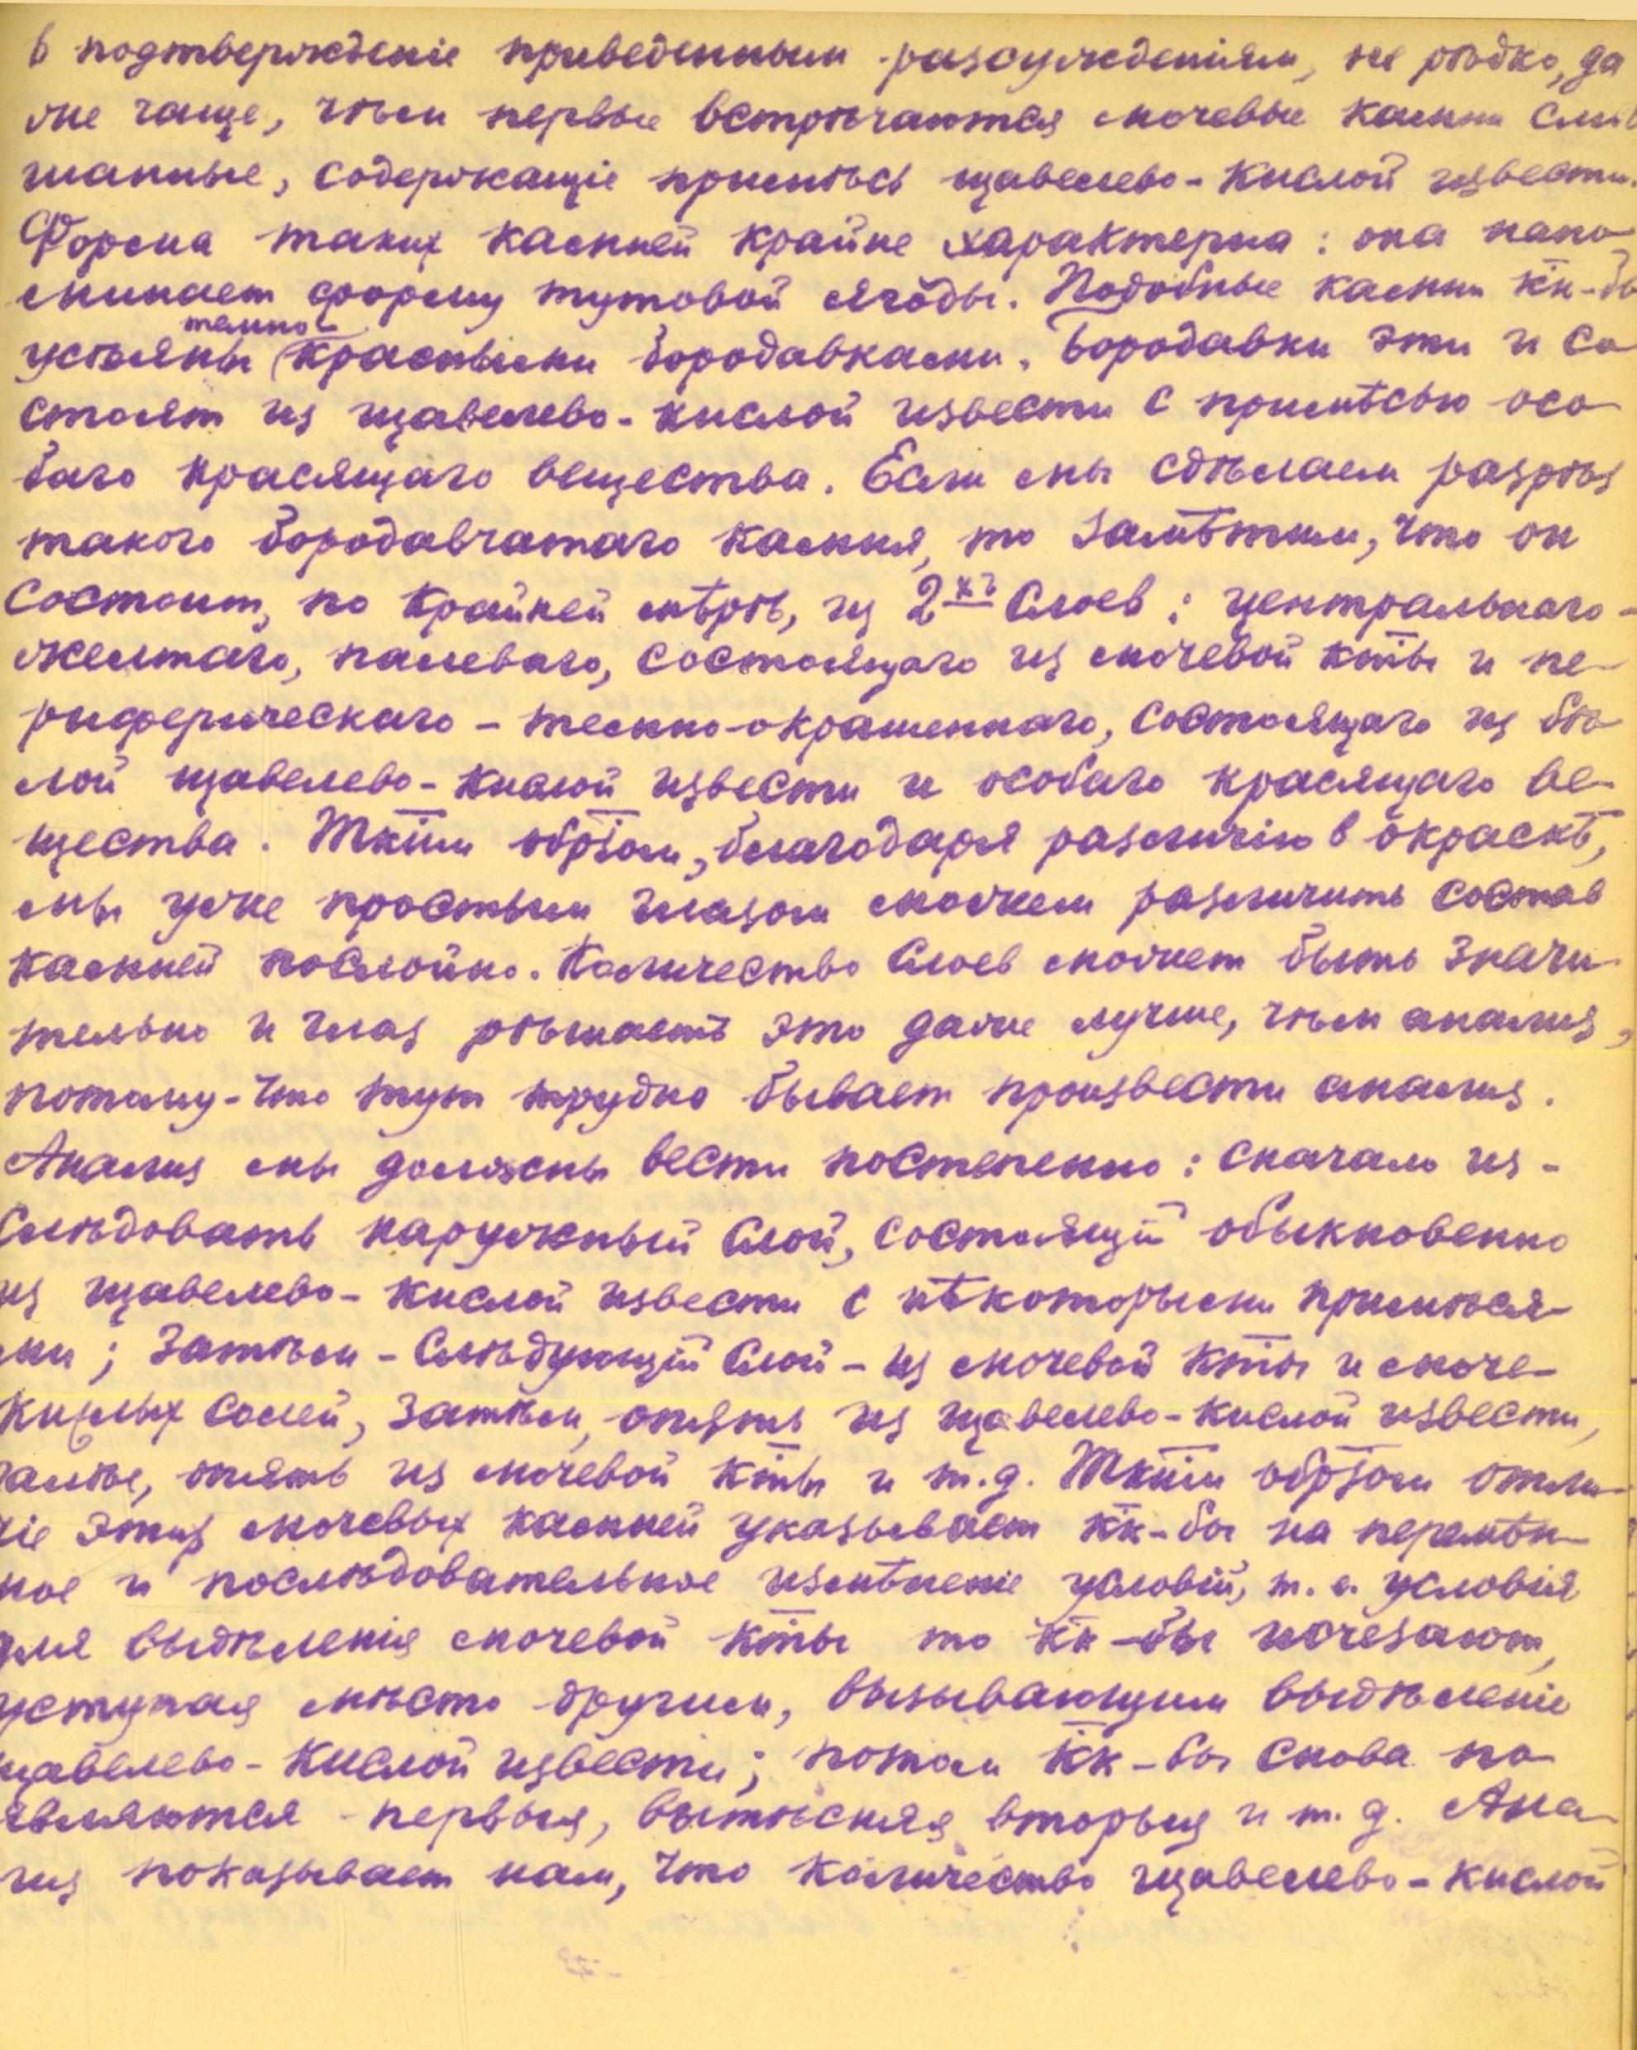 в подтвержденіе приведенным разсужденіям, не рѣдко, да
же чаще, чѣм первые встрѣчаются мочевые камни смѣ
шанные, содержащіе примѣсь щавелево-кислой извести.
Форма таких камней крайне характерна: она напо-
минает форму тутовой ягоды. Подобные камни кк-бы
усѣяны темно-
красными бородавками. Бородавки эти и со-
стоят из щавелево-кислой извести с примѣсью осо-
баго красящаго вещества. Если мы сдѣлаем разрѣз
такого бородавчатаго камня, то замѣтим, что он
состоит, по крайней мѣрѣ, из 2хъ слоев: центральнаго-
желтаго, палеваго, состоящаго из мочевой кты и пе-
риферическаго - темно-окрашеннаго, состоящаго из бѣ-
лой щавелево-кислой извести и особаго красящаго ве-
щества. Тким обрзом, благодаря различію в окраскѣ,
мы уже простым глазом можем различить состав
камней послойно. Количество слоев может быть значи-
тельно и глаз рѣшаетъ это даже лучше, чѣм анализ,
потому-что тут трудно бывает произвести анализ.
Анализ мы должны вести постепенно: сначала из-
слѣдовать наружный слой, состоящій обыкновенно
из щавелево-кислой извести с нѣкоторыми примѣся-
ми; затѣм - слѣдующій слой - из мочевой кты и моче-
кислых солей, затѣм, опять из щавелево-кислой извести,
далѣе, опять из мочевой кты и т.д. Тким обрзом отли-
чіе этих мочевых камней указывает кк-бы на перемѣн-
ное и послѣдовательное измѣненіе условій, т.е. условія
для выдѣленія мочевой кты то кк-бы исчезают,
уступая мѣсто другим, вызывающим выдѣленіе
щавелево-кислой извести; потом кк-бы снова по-
являются первыя, вытѣсняя вторыя и т.д. Ана-
лиз показывает нам, что количество щавелево-кислой